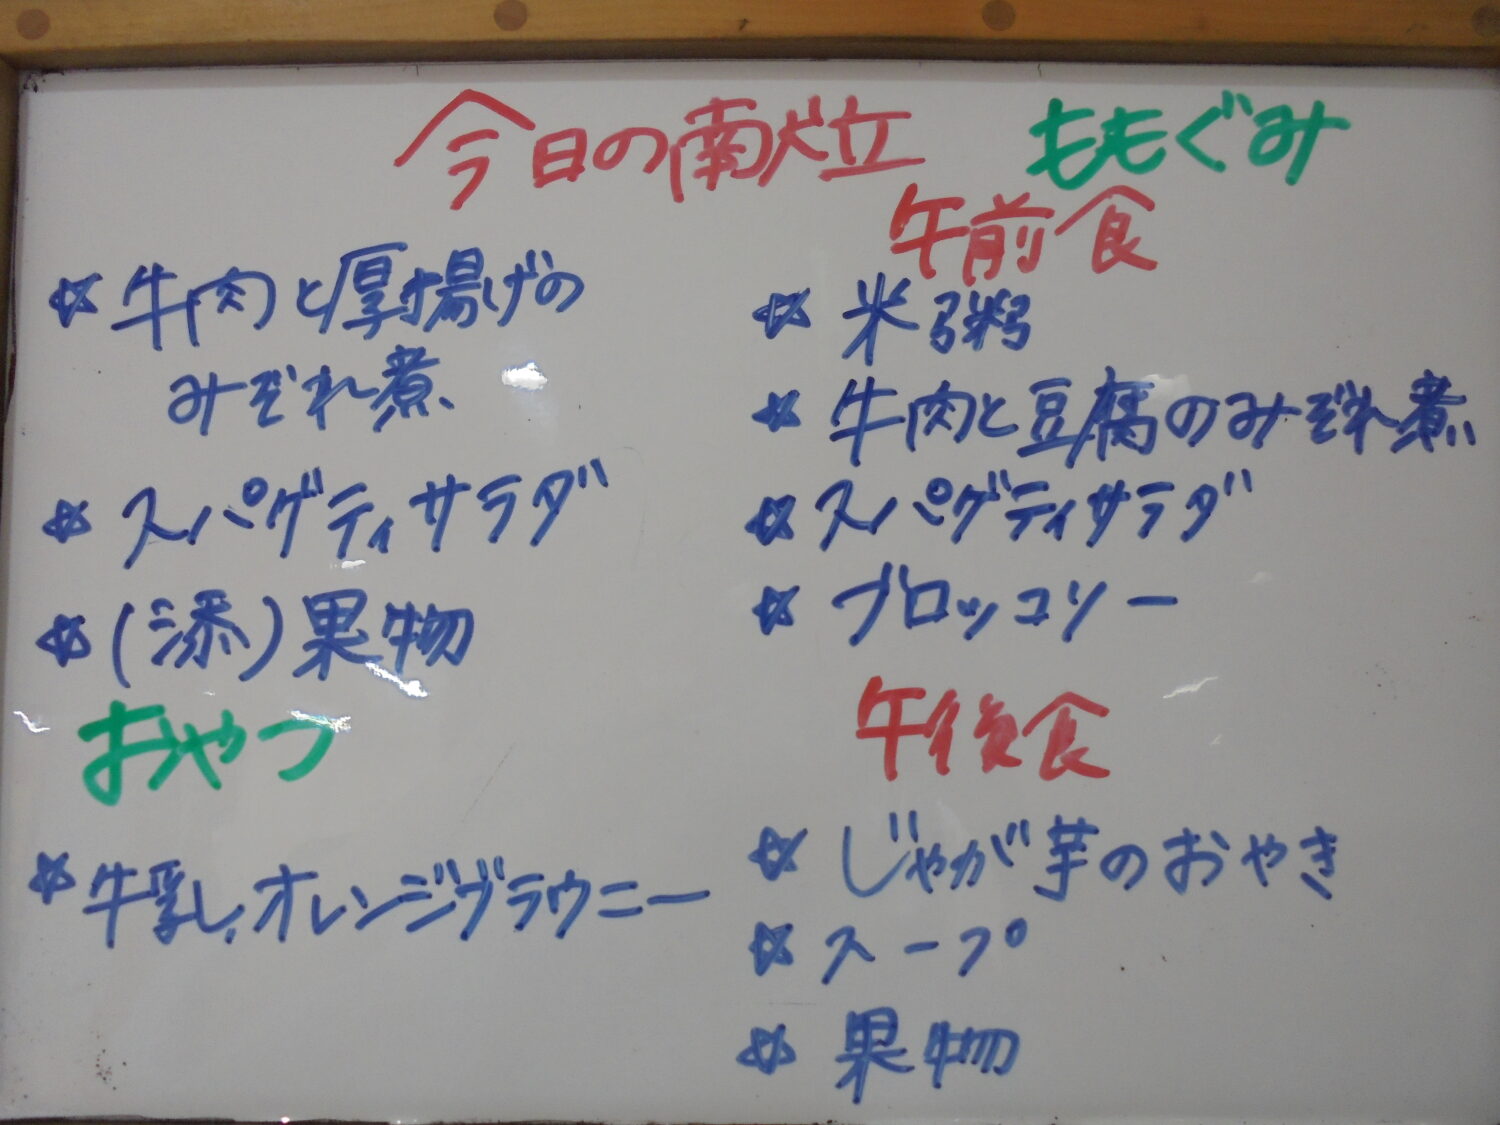 今日の献立
☆牛肉と厚揚げの
みぞれ煮
☆スパゲティサラダ
☆(添)果物
おやつ
☆牛乳、オレンジブラウニー
ももぐみ
午前食
☆米粥
☆牛肉と豆腐のみぞれ煮
☆スパゲティサラダ
☆ブロッコリー
午後食
☆じゃが芋のおやき
☆スープ
☆果物